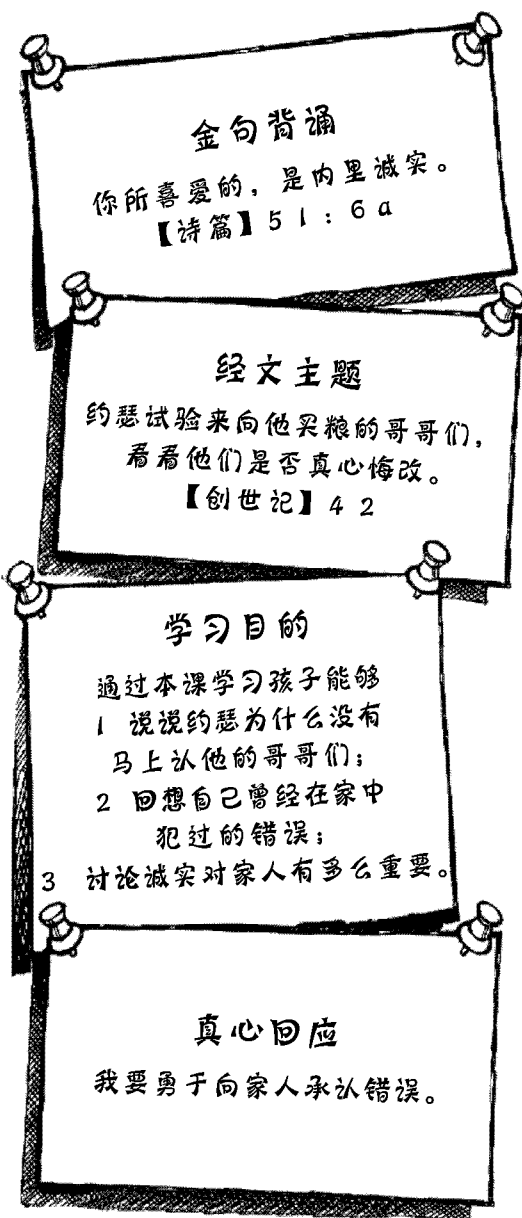 金句背诵
你所喜爱的，是内里诚实。
【诗篇】51：6a
经文主题
约瑟试验来向他买粮的哥哥们，
看看他们是否真心悔改。
【创世记】42
学习目的
通过本课学习孩子能够
1 说说约瑟为什么没有
马上认他的哥哥们；
2 回想自己曾经在家中
犯过的错误；
3 讨论诚实对家人有多么重要。
真心回应
我要勇于向家人承认错误。